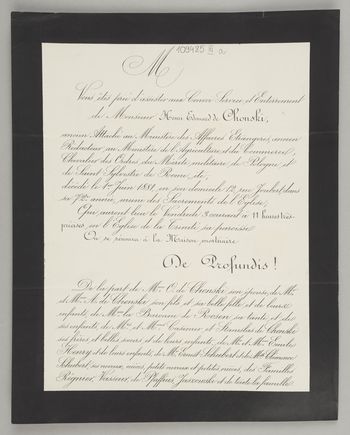 109485 III a
M
Vous êtes prié d'assister aux Convoi, Service et Enterrement
de Monsieur Henri Edmond de Chonski,
ancien Attaché au Ministère des Affaires Etrangères, ancien
Rédacteur au Ministère de l'Agriculture et du Commerce,
Chevalier des Ordres du Mérite militaire de Pologne et
de Saint Sylvestre de Rome, etc,
décédé le 1er Juin 1881, en son domicile 12, rue Joubert, dans
sa 72e année, muni des Sacrements de l'Eglise,
Qui auront lieu le Vendredi 3 courant à 11 heures très-
précises, en l'Eglise de la Trinité sa paroisse.
On se réunira à la Maison mortuaire.
De Profundis !
De la part de Mme O. de Chonski son épouse, de Mr
et Mme A. de Chonski son fils et sa belle-fille et de leurs
enfants, de Mme la Baronne de sa tante et de
ses enfants, de Mr et Mme Casimir et Stanislas de Chonski
ses frères et belles sœurs et de leurs enfants, de Mr et Mme Emile
Henry et de leurs enfants, de Mr Ernest Schubert et de Melle Clémence
Schubert, ses neveux, nièces, petits neveux et petites nièces, des Familles
Régnier, de Pfaffius, et de toute la famille